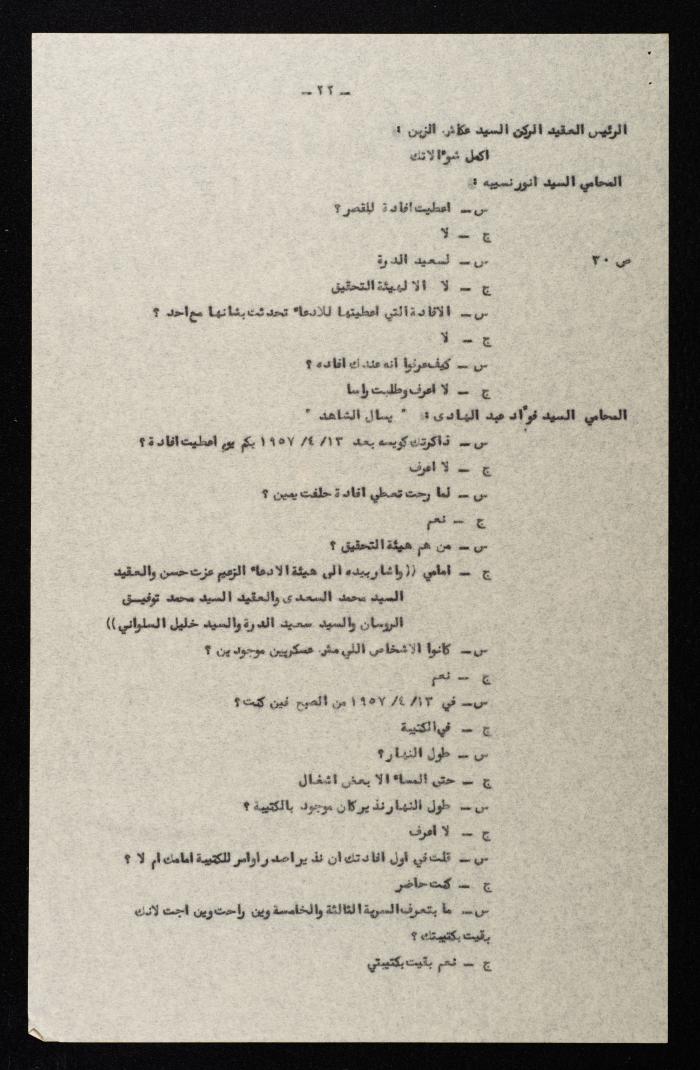 ـ ٢٢ ـ
الرئيس العقيد الركن السيد عكاش الزين :
اكمل شوءالاتك
المحامي السيد انور نسيبه :
س ـ اعطيت افادة للقصر ؟
ج ـ لا
ص ٣٠ س ـ لسعيد الدرة
ج ـ لا الا لهيئة التحقيق
س ـ الافادة التي اعطيتها للادعاء تحدثت بشانها مع احد ؟
ج ـ لا
س ـ كيف عرفوا انه عندك افاده ؟
ج ـ لا اعرف وطلبت راسا
المحامي السيد فوءاد عبد الهادى : " يسال الشاهد "
س ـ ذاكرتك كويسه بعد ١٣ /٤ /١٩٥٧ بكم يوم اعطيت افادة ؟
ج ـ لا اعرف
س ـ لما رحت تعطي افادة حلفت يمين ؟
ج ـ نعم
س ـ من هم هيئة التحقيق ؟
ج ـ امامي ((واشار بيده الى هيئة الادعاء الزعيم عزت حسن والعقيد
السيد محمد السعدى والعقيد السيد محمد توفيـق
الروسان والسيد سعيد الدرة والسيد خليل السلواني))
س ـ كانوا الاشخاص اللي مش عسكريين موجودين ؟
ج ـ نعم
س ـ في ١٣ /٤ /١٩٥٧ من الصبح فين كنت ؟
ج ـ في الكتيبة
س ـ طول النهار ؟
ج ـ حتى المساء الا بعض اشغال
س ـ طول النهار نذير كان موجود بالكتيبة ؟
ج ـ لا اعرف
س ـ قلت في اول افادتك ان نذير اصدر اوامر للكتيبة امامك ام لا ؟
ج ـ كنت حاضر
س ـ ما بتعرف السرية الثالثة والخامسة وين راحت وين اجت لانك
بقيت بكتيبتك ؟
ج ـ نعم بقيت بكتيبتي